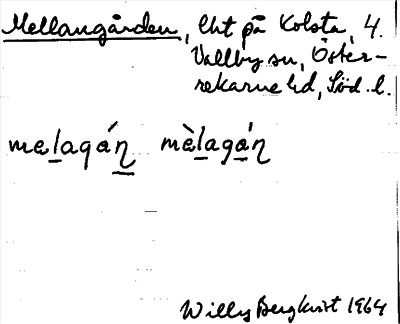 Mellangården, lht på Kolsta, 4.
Vallby sn, Öster-
rekarne hd, Söd. l.
melagán̠ mèlagán
Willy Bergkvist 1964